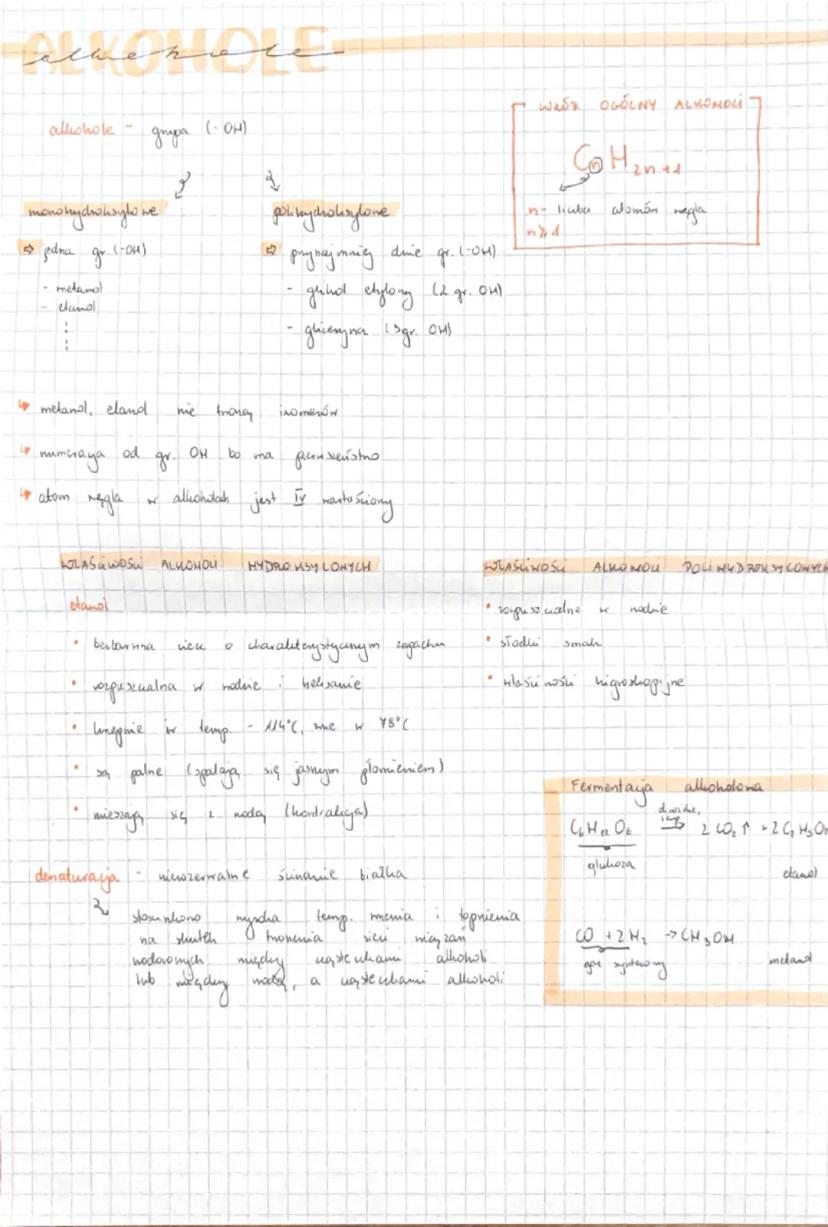 ALKOHOLE
alkohole
alkohole - grupa (-OH)
WZÓR OGÓLNY ALKOHOLI
CnH2n+1
n - liczba atomów węgla
n≥1
monohydroksylowe
⇨ jedna gr. (-OH)
- metanol
- etanol
polihydroksylowe
⇨ przynajmniej dwie gr. (-OH)
- glikol etylowy (2 gr. OH)
- gliceryna (3gr. OH)
↳ metanol, etanol nie tworzą izomerów
↳ numeracja od gr. OH bo ma pierwszeństwo
↳ atom węgla w alkoholach jest IV wartościowy
WŁAŚCIWOŚCI ALKOHOLI HYDROKSYLOWYCH
etanol
• bezbarwna ciecz o charakterystycznym zapachu
• rozpuszczalna w wodzie i heksanie
• krzepnie w temp. -114°C, wrze w 78°C
• są palne (spalają się jasnym płomieniem)
• mieszają się z wodą (kontrakcja)
WŁAŚCIWOŚCI ALKOHOLI POLIHYDROKSYLOWYCH
• rozpuszczalne w wodzie
• słodki smak
• właściwości higroskopijne
denaturacja - nieodwracalne ścinanie białka
stosunkowo wysoka temp. wrzenia i topnienia
na skutek tworzenia sieci wiązań
wodorowych między cząsteczkami alkoholi
lub między wodą, a cząsteczkami alkoholi
Fermentacja alkoholowa
C6H12O6 drożdże 2CO2↑ + 2C2H5OH
glukoza etanol
CO + 2H2 → CH3OH
gaz syntezowy metanol